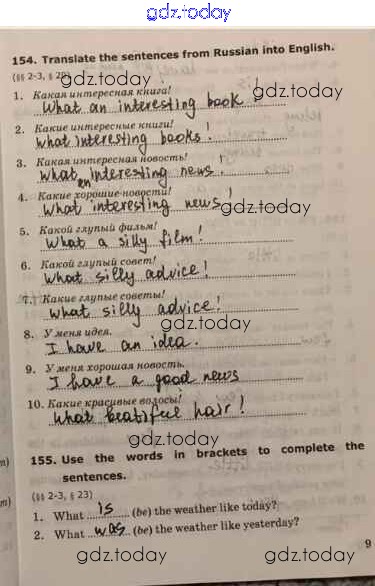 gdz.today
154. Translate the sentences from Russian into English.
(§§ 2-3, § 20)
gdz.today
1. Какая интересная книга!
What an interesting book!
2. Какие интересные книги!
What interesting books!
3. Какая интересная новость!
What an interesting news.
4. Какие хорошие новости!
What interesting news!
gdz.today
5. Какой глупый фильм!
What a silly film!
6. Какой глупый совет!
What silly advice!
7. Какие глупые советы!
What silly advice!
gdz.today
8. У меня идея.
I have an idea.
9. У меня хорошая новость.
I have a good news
10. Какие красивые волосы!
What beatiful hair!
gdz.today
155. Use the words in brackets to complete the
sentences.
(§§ 2-3, § 23)
1. What is (be) the weather like today?
2. What was (be) the weather like yesterday?
9
gdz.today gdz.today